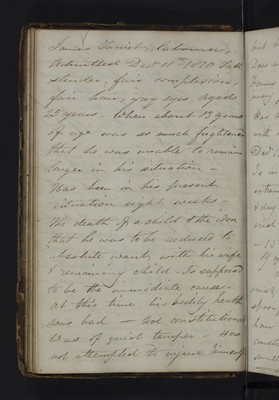 James Laborer
Admitted Dec 11th 1820 Tall
slender, fair complexion,
fair hair, grey eyes, aged
25 years - When about 13 years
of age was so much frightened
that he was unable to remain
longer in his situation -
Has been in his present
situation eight weeks -
The death of a child & the idea
that he was to be reduced to
absolute want, with his wife
& remaining child - Is supposed
to be the immediate cause -
at this time his bodily health
was bad - not constitutional
was of quiet temper - Has
not attempted to injure himself